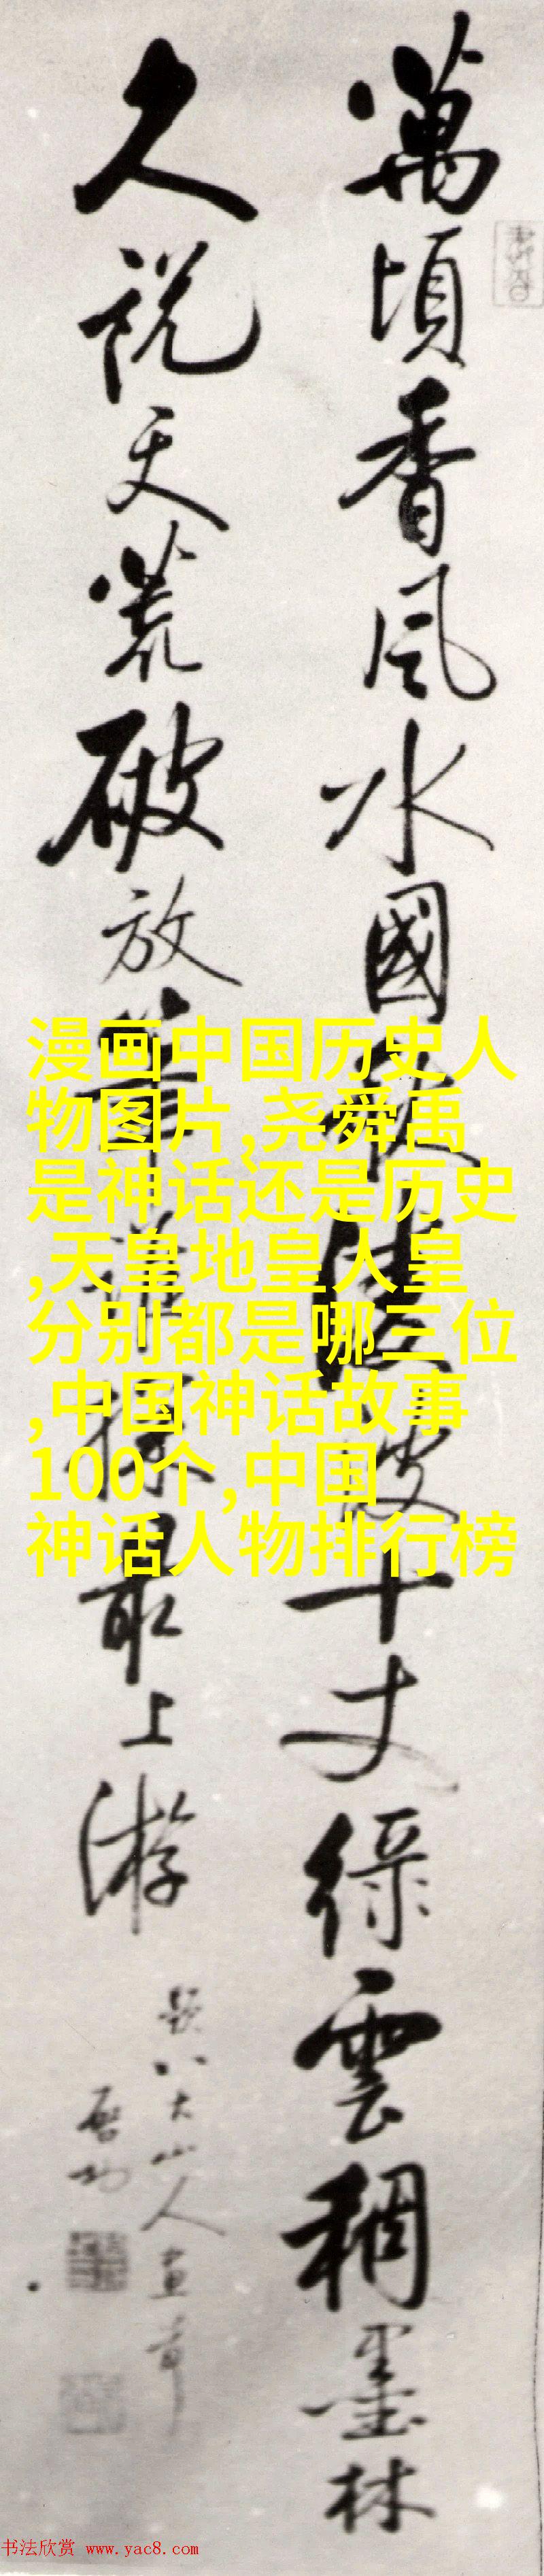 萬頃香風水國秋波十丈綠雲稠墨林
久說天荒破放筆最上游
題八大山人畫
启功
漫画中国历史人
物图片,尧舜禹
是神话还是历史
,天皇地皇人皇
分别都是哪三位
,中国神话故事
100个,中国
神话人物排行榜
书法欣赏 www.yac8.com